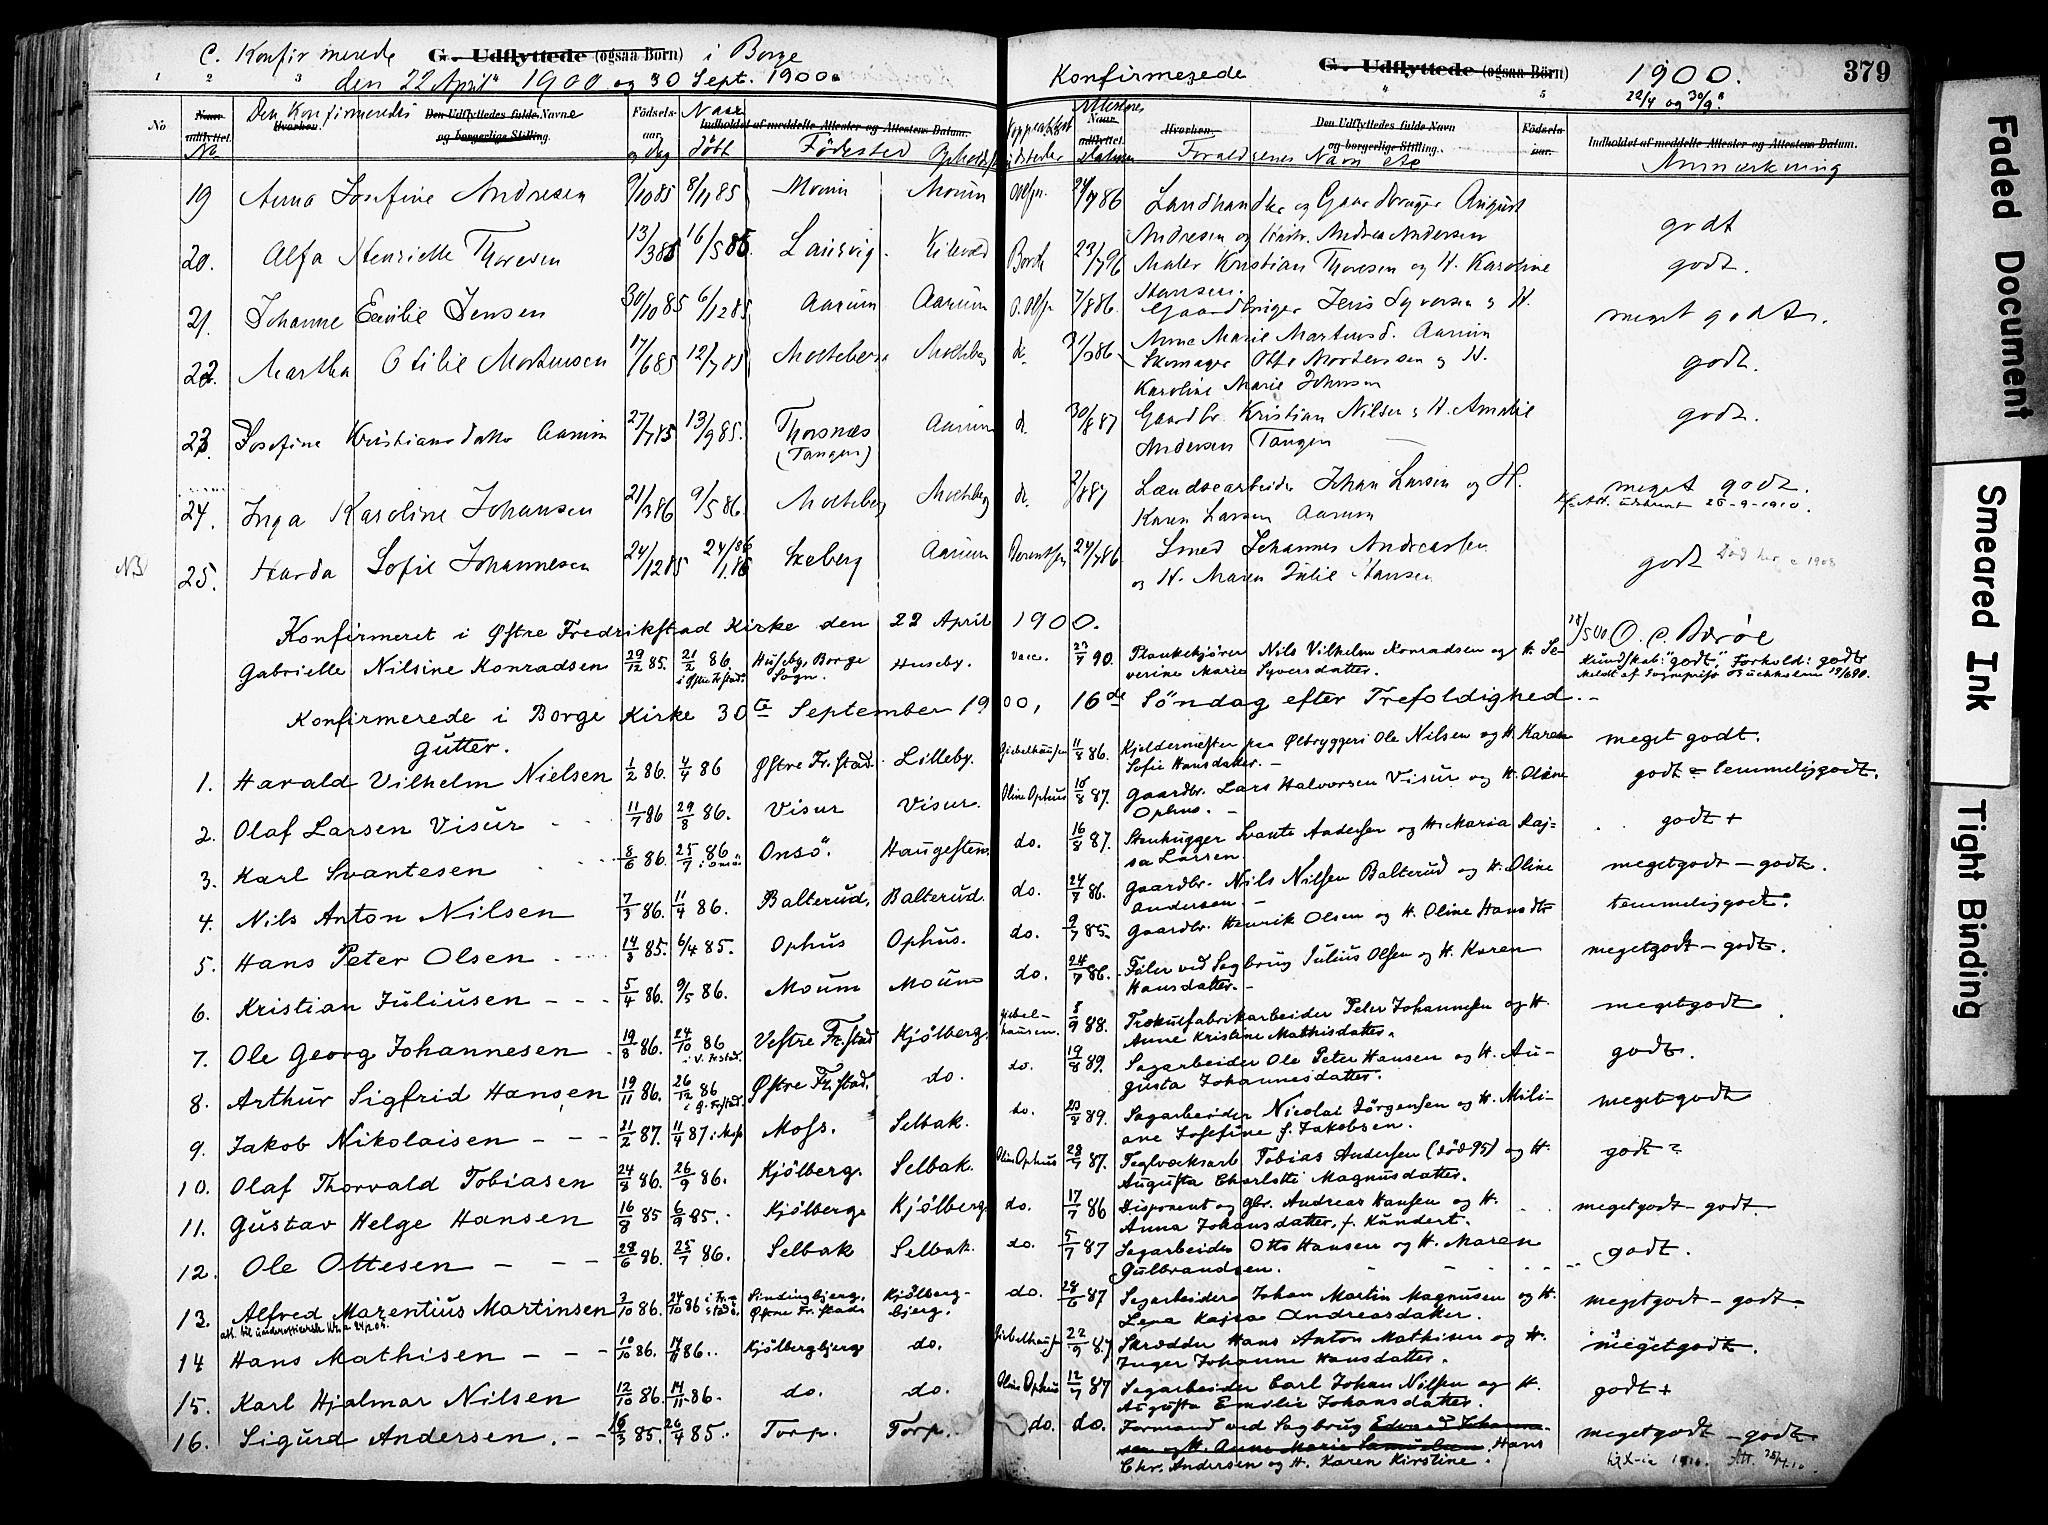 C. Konfirmerede G. Udflyttede (ogsaa Börn) i Borge
den 22 April 1900 og 30 Sept. 1900
Konfirmerede G. Udflyttede (ogsaa Börn) 1900. 379
22/4 og 30/9
No Naar udflyttet. No Den Konfirmeredes Hvorhen. Den Udflyttedes fulde Navn og borgerlige Stilling. Födsels-aar og dag Naar döbt Indholdet af meddelte Attester og Attestens Datum. Födested
Naar udflyttet. Hvorhen. Den Udflyttedes fulde Navn og borgerlige Stilling. Forældrenes Navn etc Födsels-aar. Indholdet af meddelte Attester og Attestens Datum. Anmærkning
19 Anna Josefine Andresen 9/10 85 8/11 85 Moum Moum Landhandler og Gaardbruger August
Andresen og Andrea Andersen godt
20. Alfa Henriette Thoresen 13/3 85 16/5 85. Laurvig Kilevold 23/7 96 Maler Kristian Thoresen og H. Karoline
Hansen. godt.
21. Johanne Emilie Jensen 30/10 85 6/12 85 Aarum Aarum 7/8 86. Gaardbruger Jens Syversen og H.
Anne Marie Martinsd. Aarum meget godt.
22. Martha Otilie Mortensen 17/6 85 12/7 85 Moteberg Moteberg do. Skomager Otto Mortensen og H.
Karoline Marie Johnsen godt.
23. Josefine Kristiansdatter Aarum 27/7 85 13/9 85. Thorsnæs
(Tangen) Aarum do. 30/8 87 Gaardbr. Kristian Nilsen og H. Amalie
Andersen Tangen godt.
24. Inga Karoline Johansen 21/3 86 9/5 86. Moteberg Moteberg do. 2/8 87 Landsearbeider Johan Larsen og H.
Karen Larsen Aarum meget godt.
Att. utskrevet 26-9-1910.
NB 25. Harda Sofie Johannesen 24/12 85 24/1 86 Skeberg Aarum 24/7 86 Smed Johannes Andreassen
og H. Maren Julie Hansen godt Död her 1908
Konfirmeret i Östre Fredrikstad Kirke den 22 April 1900. 18/5 00 O. C. Baröe
Gabrielle Nilsine Konradsen 29/12 85. 21/2 86. i Östre Frstad. Huseby, Borge Sogn. Huseby. vacc. 23/7 90. Plankekjörer Nils Vilhelm Konradsen og H. Se-
verine Marie Syversdatter. Kundskab: "godt", Forhold: godt
Meldt af Sogneprest
Konfirmerede i Borge Kirke 30te September 1900, 16de Söndag efter Trefoldighed.
Gutter.
1. Harald Vilhelm Nielsen 1/2 86. 4/4 86 Östre Fr.stad. Lilleby. Giebelhausen 11/8 86. Kjeldermester paa Ölbryggeri Ole Nilsen og H. Karen
Sofie Hansdatter. meget godt.
2. Olaf Larsen Visur 11/7 86 29/8 86. Visur Visur. Oline Ophus 18/8 87. Gaardbr. Lars Halvorsen Visur og H. Oline
Ophus. godt = temmelig godt.
3. Karl Svantesen 8/6 86. 25/7 86 i Onsö Onsö. Haugesten. do. 16/8 87. Stenhugger Svante Andersen og H. Maria Kaj-
sa Larsen. godt +
4. Nils Anton Nilsen 7/3 86. 11/4 86. Balterud, Balterud. do. 24/7 86. Gaardbr. Nils Nilsen Balterud og H. Oline
Andersen. meget godt - godt.
5. Hans Peter Olsen 14/3 85. 6/4 85. Ophus Ophus. do. 9/7 85. Gaardbr. Henrik Olsen og H. Oline Hansdtr temmelig godt.
6. Kristian Juliusen 5/4 86. 9/5 86. Moum Moum do. 24/7 86. Filer ved Sagbrug Julius Olsen og H. Karen
Hansdatter. meget godt - godt.
7. Ole Georg Johannesen 19/8 86. 24/10 86 i V. Frstad. Vestre Fr.stad Kjölberg. Giebelhausen. 8/9 88. Trækulfabrikarbeider Peter Johannesen og H.
Anne Kristine Mathisdatter. meget godt
8. Arthur Sigfrid Hansen 19/11 86. 26/12 86 i Ö. Frstad. Östre Fr.stad. do. do. 19/8 89. Sagarbeider Ole Peter Hansen og H. Au-
gusta Johannesdatter. godt.
9. Jakob Nikolaisen 21/2 87. 11/4 87 i Moss Moss. Selbak. do. 20/8 89. Sagarbeider Nicolai Jörgensen og H. Mili-
ane Josefine f. Jakobsen. meget godt
10. Olaf Thorvald Tobiasen 24/8 86. 26/9 86. Kjölberg. Selbak. Oline Ophus 28/7 87. Teglværksarb Tobias Andersen (död 95) og H.
Augusta Charlotte Magnusdatter. godt =
11. Gustav Helge Hansen 16/8 85 6/9 85. Kjölberg Kjölberg. do. 17/7 86 Disponent og Gbr. Andreas Hansen og H.
Anna Johansdatter, f. Kundert. meget godt - godt.
12. Ole Ottesen 28/6 86. 25/7 86. Selbak Selbak. do. 5/7 87 Sagarbeider Otto Hansen og H. Maren
Gulbrandsen. godt.
13. Alfred Marentius Martinsen 3/10 86. 24/10 86 i Frstad Sindingbjerg, Östre Fr.stad Kjölberg-bjerg. do. 28/6 87 Sagarbeider Johan Martin Magnusen og H.
Lena Kajsa Andreasdatter. meget godt - godt.
14 Hans Mathisen 10/10 86. 14/11 86. Kjölbergbjerg do. Giebelhausen 22/9 87 Skrædder Hans Anton Mathisen og H.
Inger Johanne Hansdatter. meget godt.
15. Karl Hjalmar Nilsen 12/10 86. 14/11 86. do. do. Oline Ophus 12/7 87 Sagarbeider Carl Johan Nilsen og H.
Augusta Emilie Johansdatter. godt +
16. Sigurd Andersen. 16/3 85. 26/4 85. Torp. Torp. do. do. Formand ved Sagbrug Edvard Johann-
sen og H. Anne Marie Samuelsen Hans
Chr. Andersen og H. Karen Kirstine. meget godt - godt
Faded Document
Smeared Ink
Tight Binding